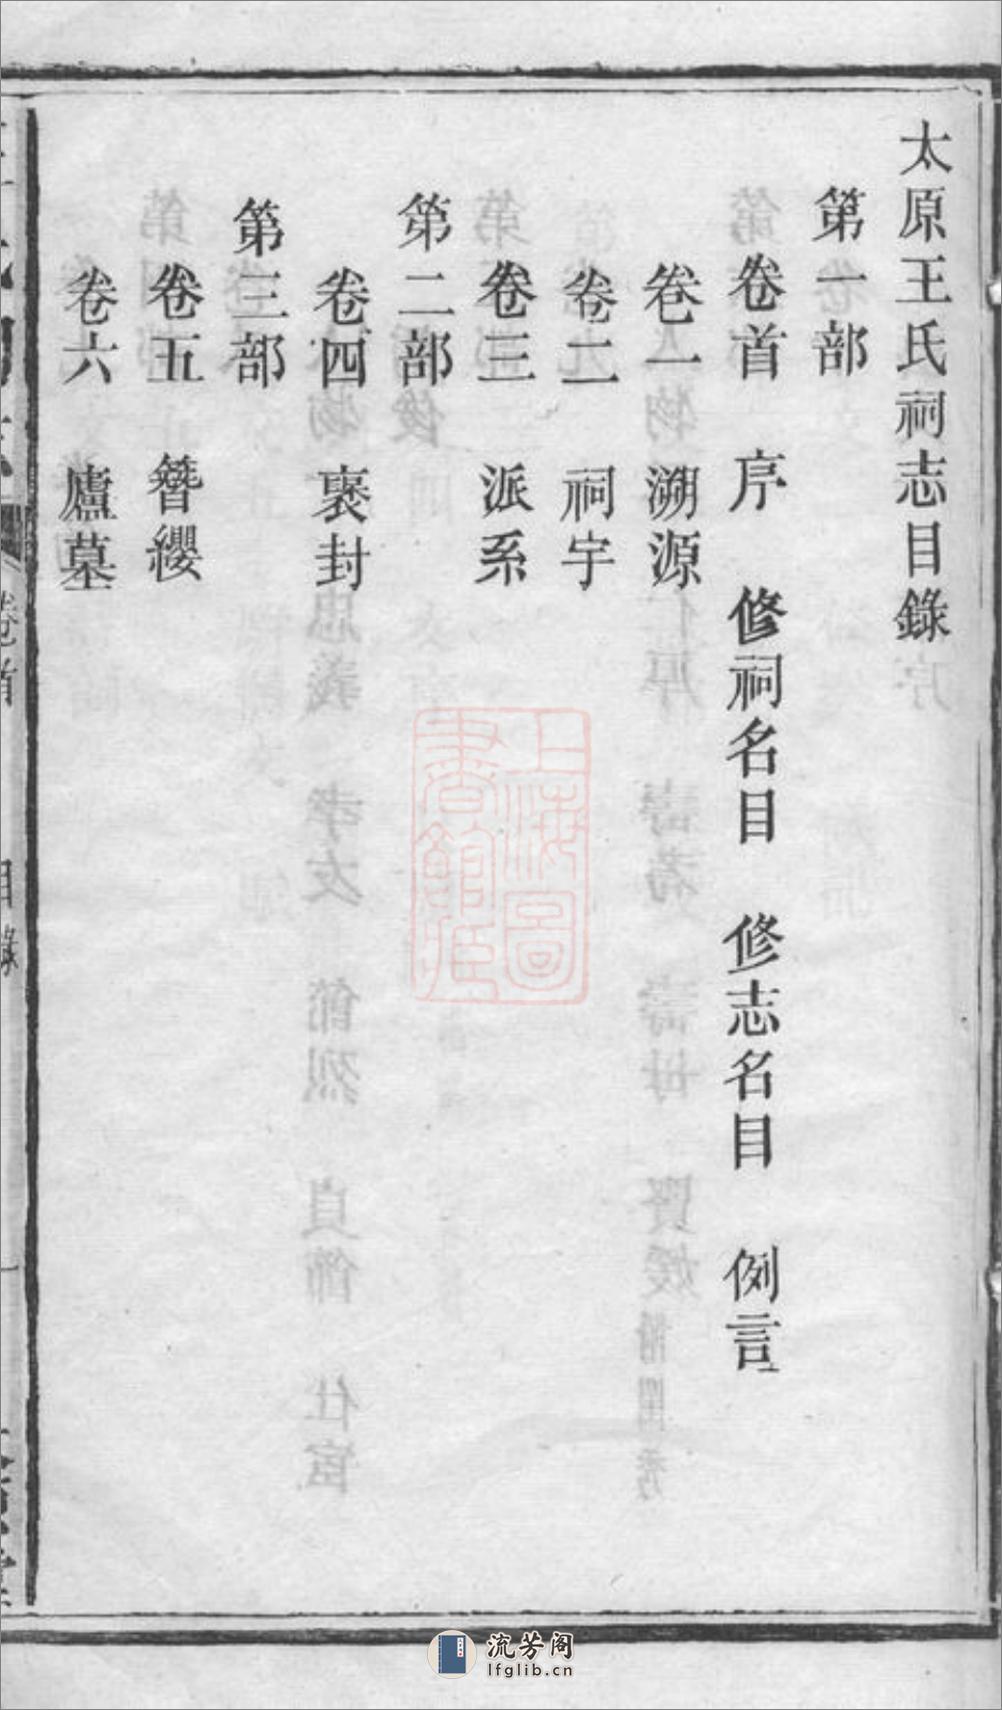 太原王氏祠志目錄
第一部
卷首　序　修祠名目　修志名目　例言
卷一　溯源
卷二　祠宇
卷三　派系
第二部
卷四　褒封
第三部
卷五　簪纓
卷六　廬墓
卷首
目錄
一
上海圖書館藏
流芳阁
lfglib.cn